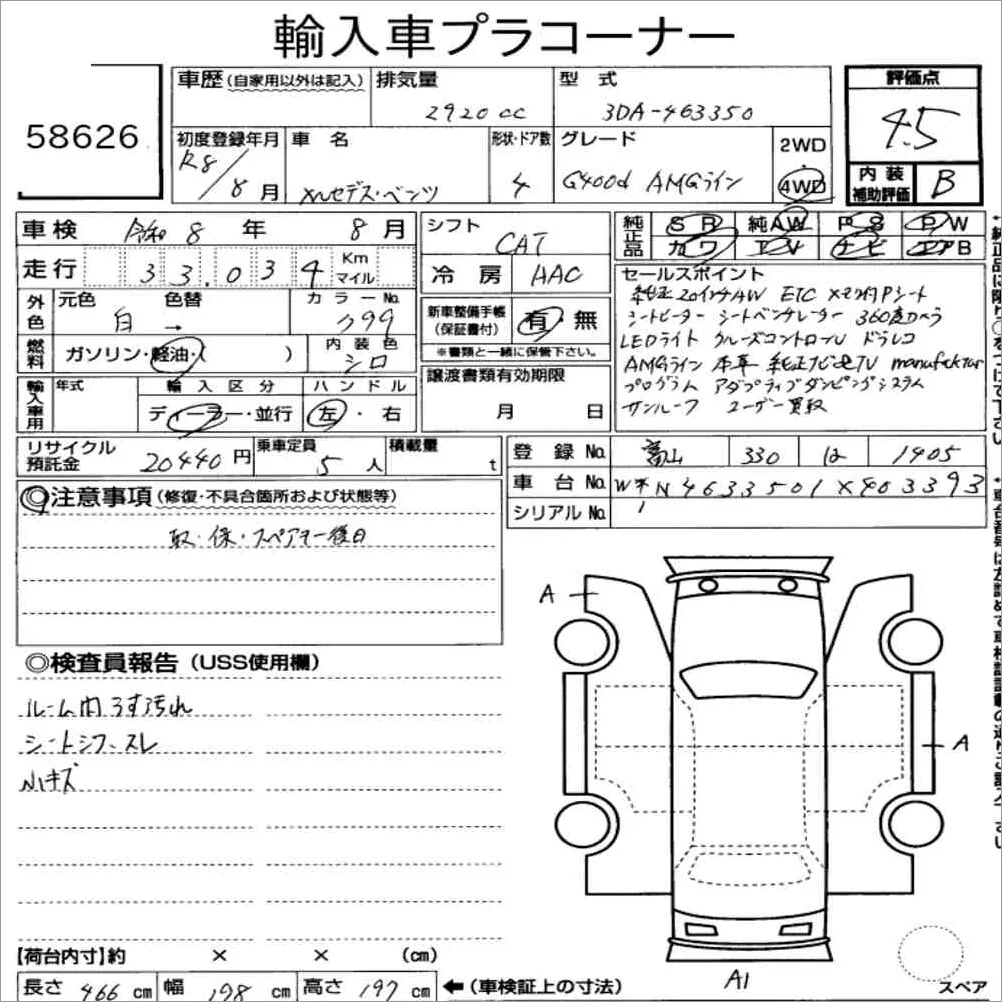 輸入車プラコーナー
58626
車歴(自家用以外は記入) 排気量 2920cc 型式 3DA-463350 評価点 4.5
初度登録年月 R8/8月 車名 メルセデス・ベンツ 形状・ドア数 4 グレード G400d AMGライン 2WD・4WD 内装補助評価 B
車検 令和8年8月 シフト CAT 純正品 SR 純AW PS PW
カワ TV ナビ エアB
走行 33,034 Km マイル 冷房 AAC
外色 元色 白 → 色替 カラーNo. 799
新車整備手帳(保証書付) 有・無
※書類と一緒に保管下さい。
燃料 ガソリン・軽油・( ) 内装色 シロ
輸入車用 年式 輸入区分 ディーラー・並行 ハンドル 左・右
譲渡書類有効期限 月 日
セールスポイント
純正20インチAW ETC メモリ付Pシート
シートヒーター シートベンチレーター 360度カメラ
LEDライト クルーズコントロール ドラレコ
AMGライン 本革 純正ナビ地TV manufaktur
プログラム アダプティブダンピングシステム
サンルーフ ユーザー買取
リサイクル預託金 20440円 乗車定員 5人 積載量 t
登録No. 富山 330 は 1405
車台No. W1N4633501X403393
シリアルNo.
◎注意事項(修復・不具合箇所および状態等)
取・保・スペアキー後日
◎検査員報告(USS使用欄)
ルーム内うす汚れ
シートシワ、スレ
小キズ
A
A
A1
【荷台内寸】約 × × (cm)
長さ 466 cm 幅 198 cm 高さ 197 cm ←(車検証上の寸法)
スペア